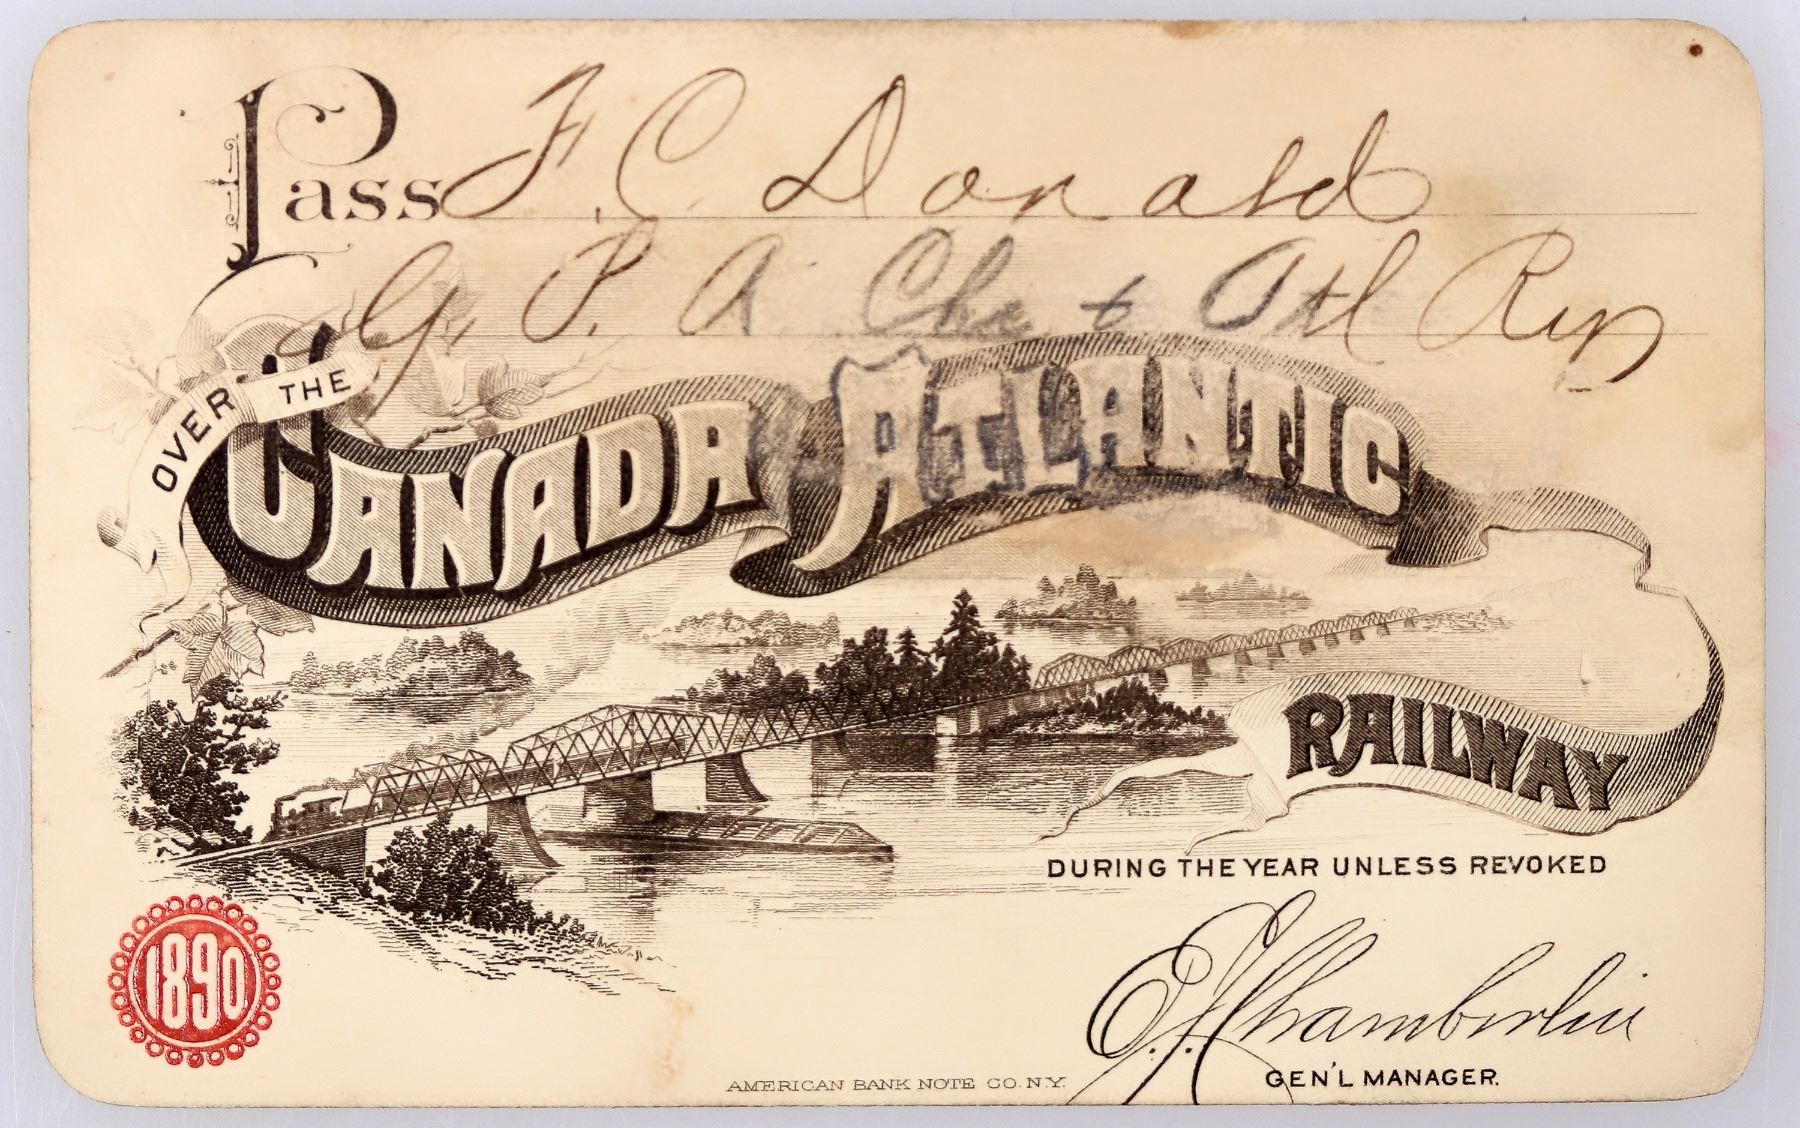 Pass F. C. Donald
G. P. A Chi & Atl Ry
OVER THE
CANADA ATLANTIC
RAILWAY
DURING THE YEAR UNLESS REVOKED
E. J. Chamberlin
GEN'L MANAGER.
1890
AMERICAN BANK NOTE CO. N.Y.